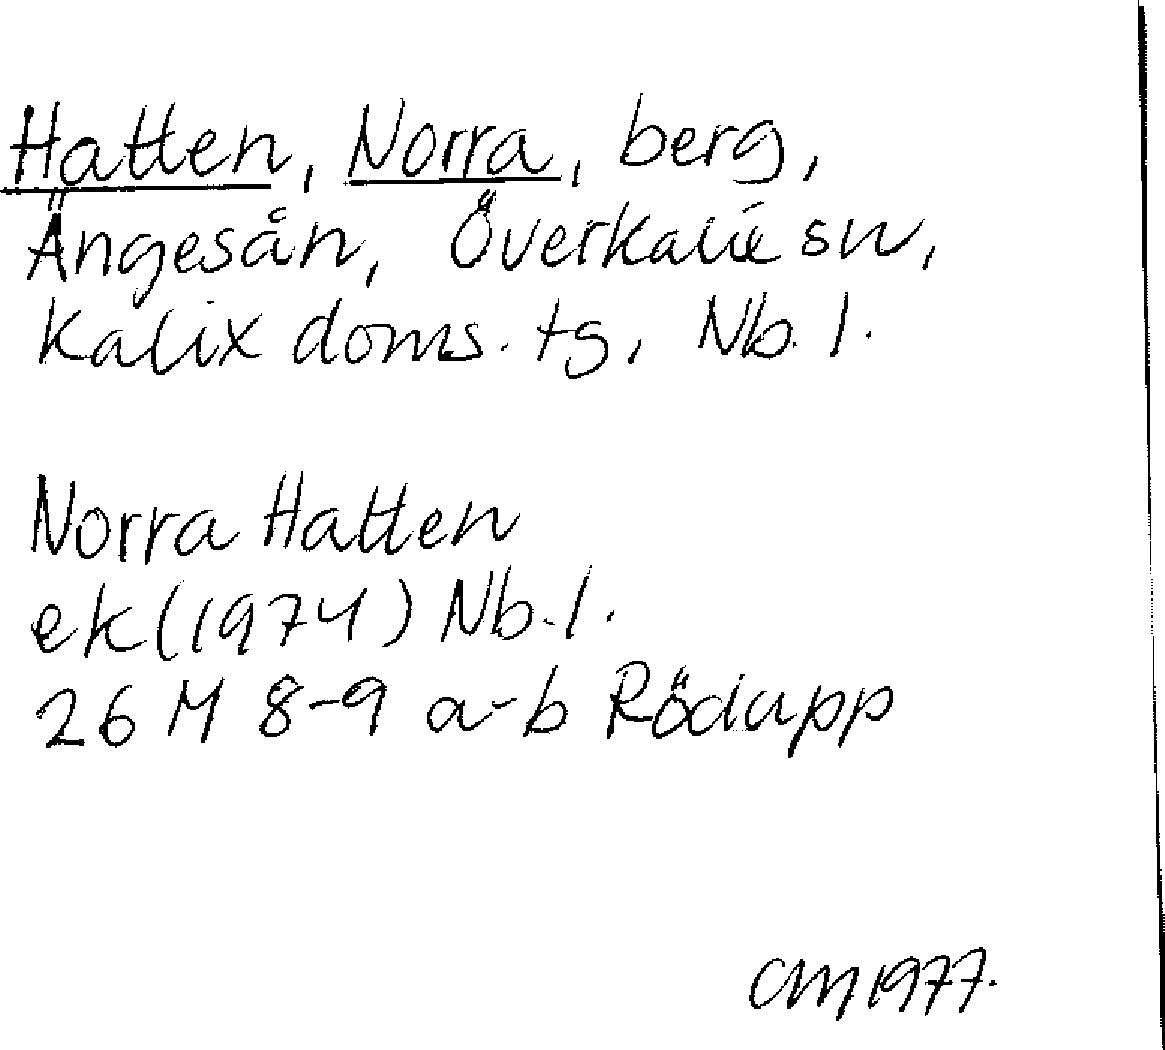 Hatten, Norra, berg,
Ängesån, Överkalix sn,
Kalix doms. tg, Nb. l.
Norra Hatten
ek (1974) Nb. l.
26 M 8-9 a-b Rödupp
CM 1977.